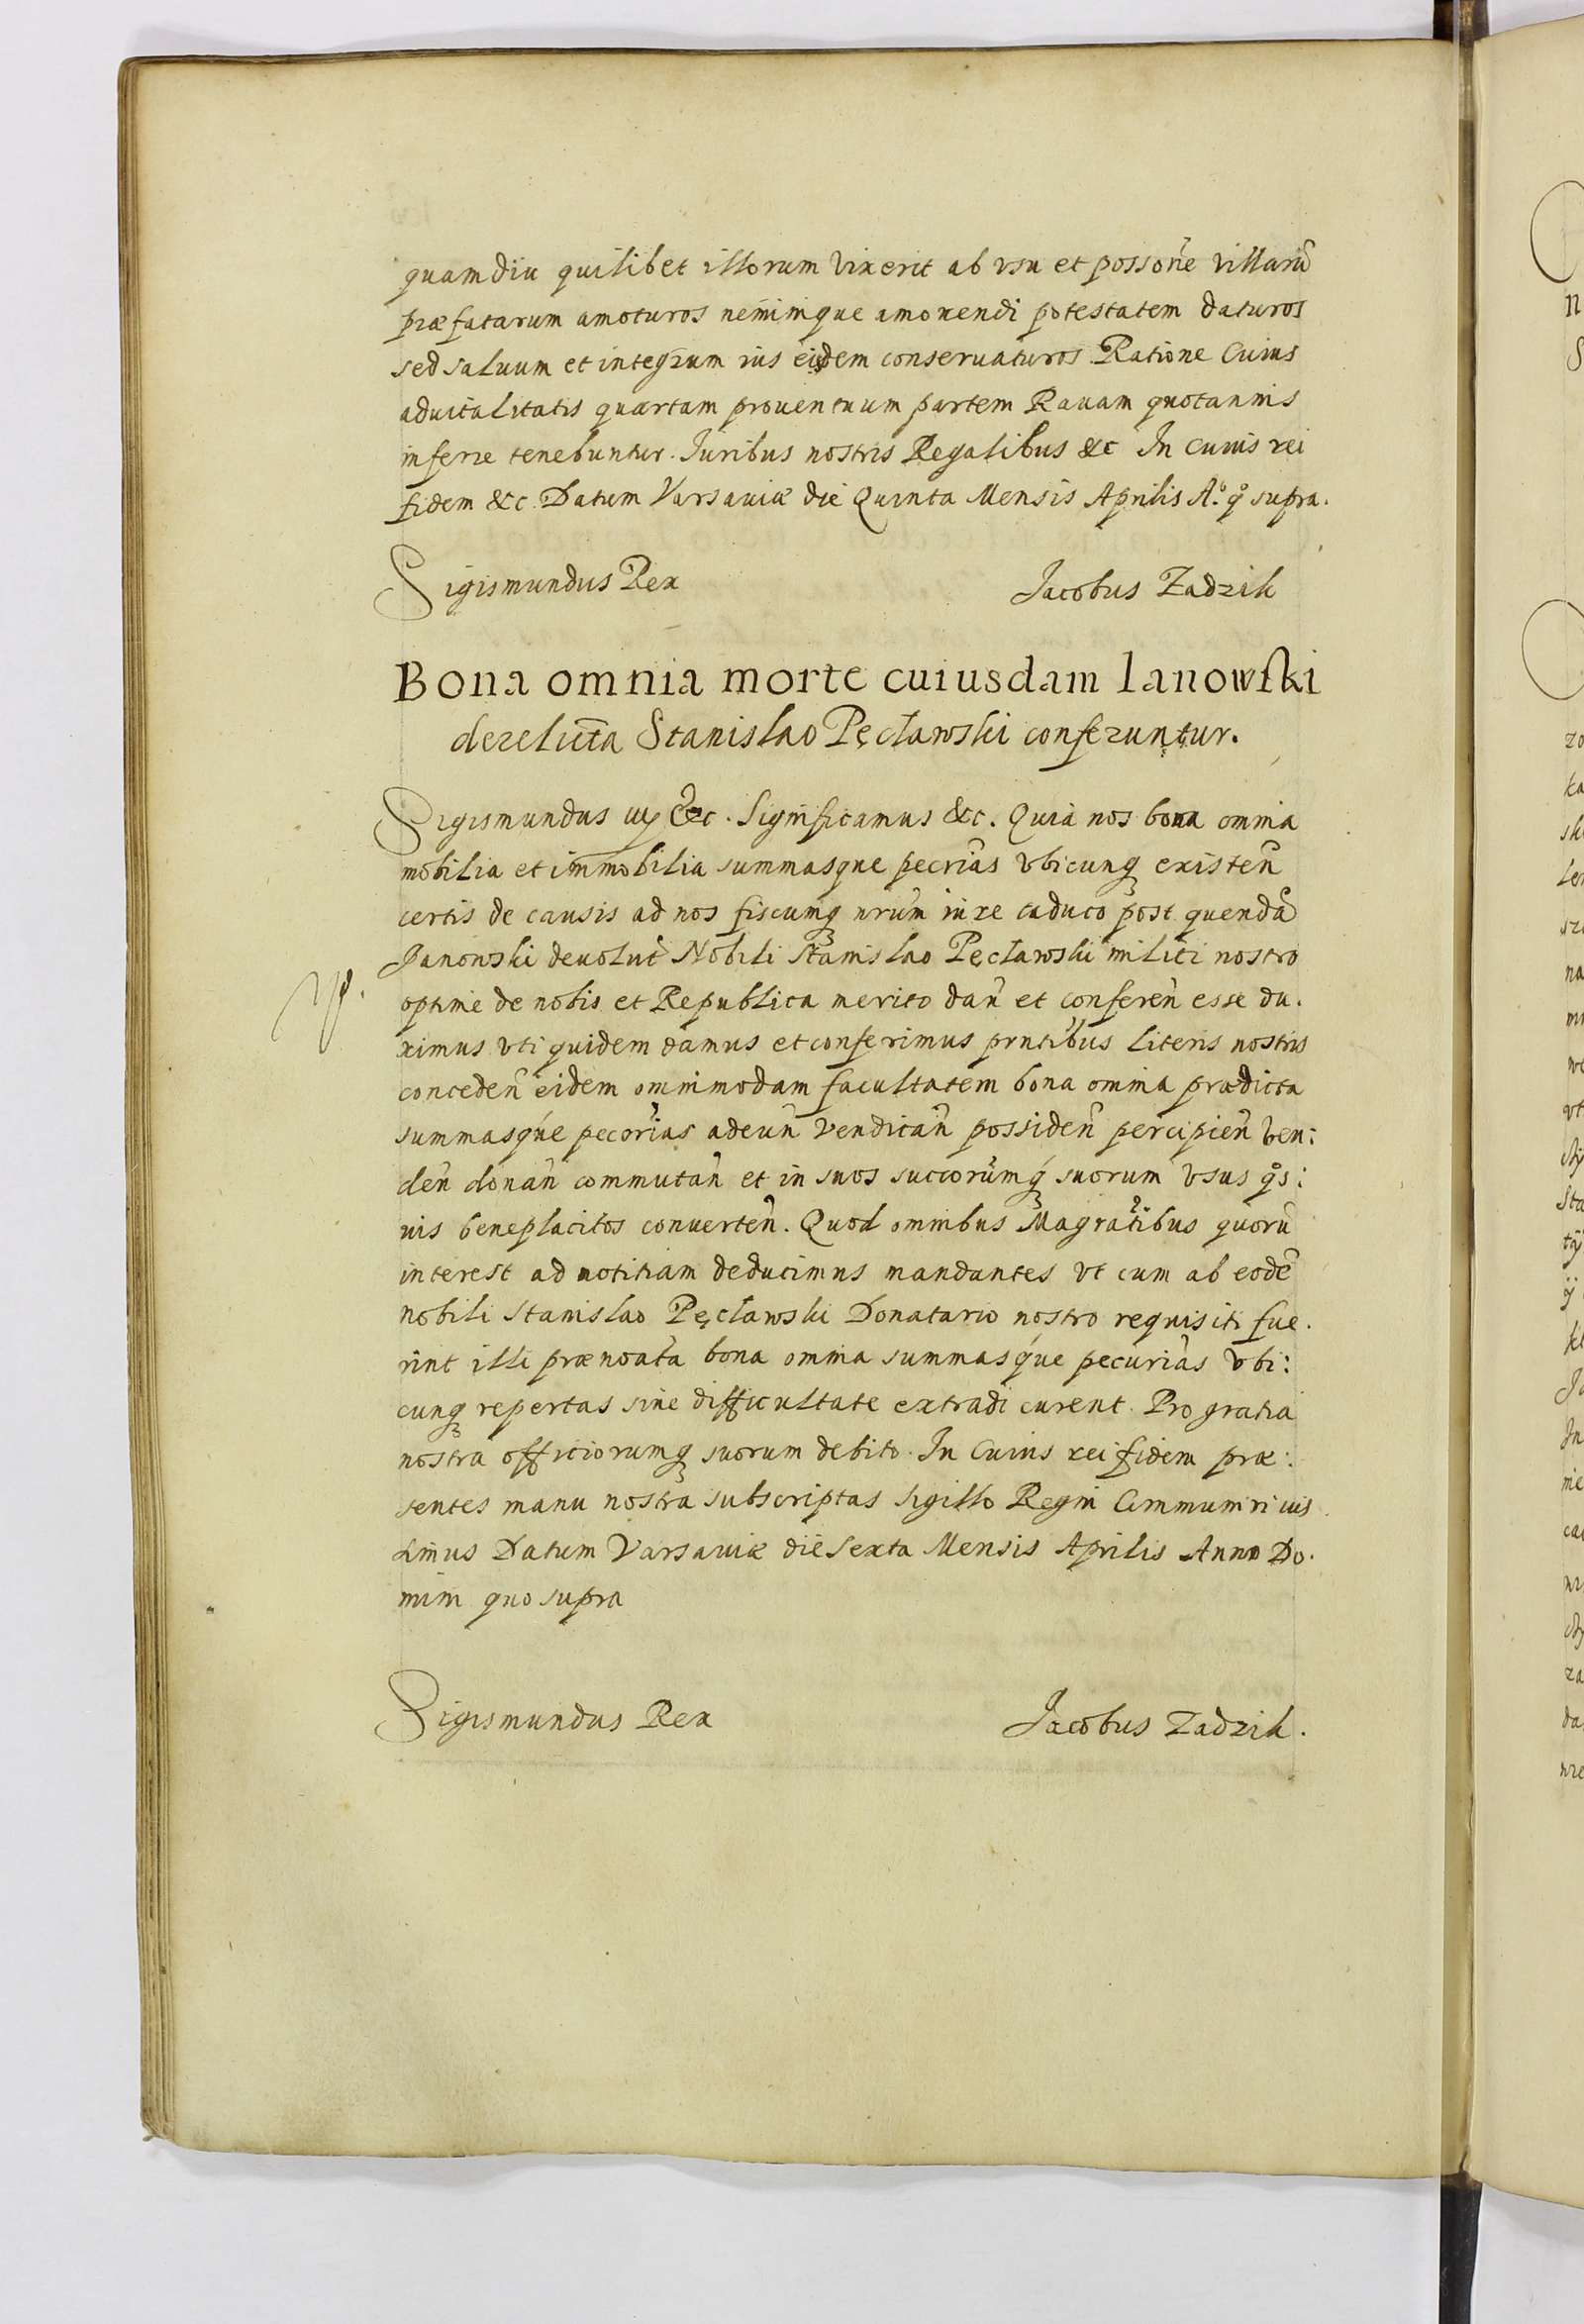 quamdiu quilibet illorum vixerit ab vsu et possone villarũ
præfatarum amoturos neminique amouendi potestatem daturos
sed saluum et integrum ius eisdem conseruaturos Ratione Cuius
aduitalitatis quartam prouentuum partem Rauam quotannis
inferre tenebuntur. Iuribus nostris Regalibus &c In cuius rei
fidem &c. Datum Varsauiæ die Quinta Mensis Aprilis Aº. qº supra.
Sigismundus Rex Jacobus Zadzik
Bona omnia morte cuiusdam Ianowski
derelicta Stanislao Pęcławski conferuntur.
Sigismundus iij &c. Significamus &c. Quia nos bona omnia
mobilia et immobilia summasque pecrias vbicunq existeñ
certis de causis ad nos fiscumq nrum iure caduco post quendã
Janowski deuolut Nobili Stanislao Pęcławski militi nostro
optime de nobis et Republica merito dañ et confereñ esse du.
ximus vti quidem damus et conferimus prntibus literis nostris
concedeñ eidem omnimodam facultatem bona omnia prædicta
summasque pecorias adeuñ vendicañ possideñ percipieñ ven:
deñ donañ commutañ et in suos succorumq suorum vsus qs:
uis beneplacitos conuerteñ. Quod omnibus Magratibus quorũ
interest ad notitiam deducimus mandantes vt cum ab eodẽ
nobili Stanislao Pęcławski Donatario nostro requisiti fue.
rint illi prænoata bona omnia summasque pecurias vbi:
cunq repertas sine difficultate extradi curent. Pro gratia
nostra officiorumq suorum debito. In Cuius rei fidem præ:
sentes manu nostra subscriptas sigillo Regni Commumri iuis
simus Datum Varsauiæ die Sexta Mensis Aprilis Anno Do.
mini quo supra
Sigismundus Rex Jacobus Zadzik.